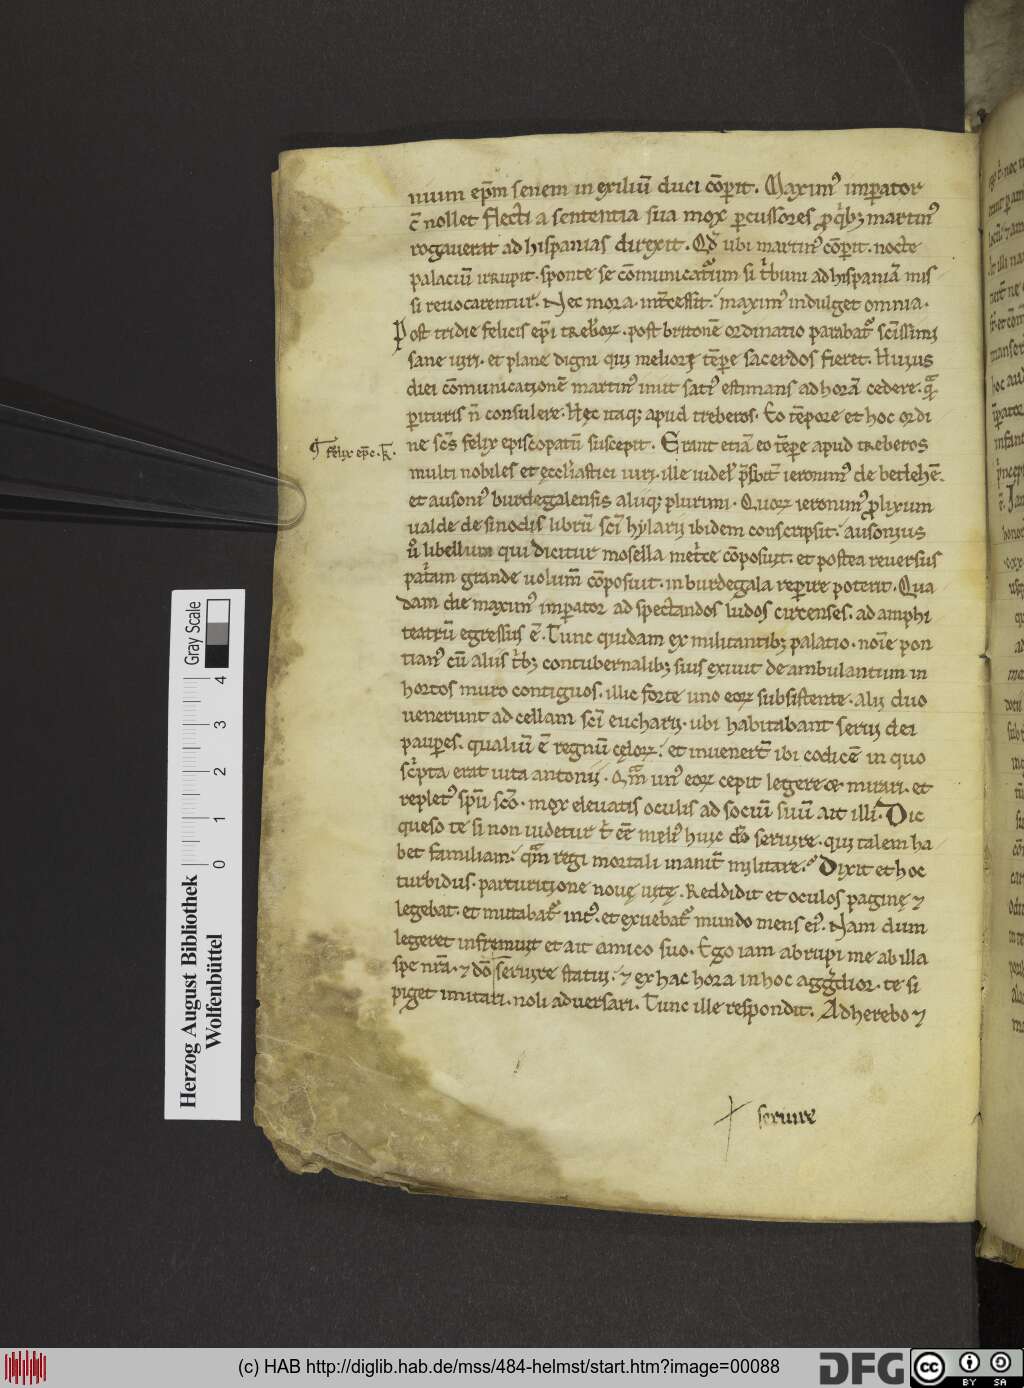 num ep̄m senem in exiliū duci cōp̲it. Maxim᷒ imp̲ator
c̄ nollet flecti a sententia sua mox p̲cussores p̲ q̇bꝫ martin᷒
rogauerat ad hispanias direxit. Qđ ubi martin᷒ cōp̲it. nocte
palaciū irrupit. sponte se cōmunicaturum si ṫbuni ad hispaniā mis
si reuocarentur. Nec mora. int̄cessit. maxim᷒ indulget omnia.
Post tridie felicis ep̄i treberoꝝ. post britonē ordinatio parabat᷒ sc̄issimi
sane uiri. et plane digni qui melioꝝ tēp̲e sacerdos fieret. Huius
diei cōmunicationē martin᷒ iniit sati᷒ estimans ad horā cedere. q̄
p̲ituris n̄ consulere. Hęc itaqꝫ apud treberos. Eo tēpore et hoc ordi
ne sc̄s felix episcopatū suscepit. Erant etiā eo tēp̲e apud treberos
¶ felix ep̄c. k̄.
multi nobiles et eccl̄iastici uiri. ille uidel᷒ p̄sbit̄ ieronim᷒ de betlehē.
et ausoni᷒ burdegalensis aliiqꝫ plurimi. Quoꝝ ieronim᷒ p̲lixum
ualde de sinodis librū sc̄i hylarii ibidem conscripsit. ausonius
ů libellum qui dicitur mosella meṫce cōposuit. et postea reuersus
paṫam grande uolum̄ cōposuit. in burdegala rep̲ire poterit. Qua
dam die maxim᷒ imp̲ator ad spectandos ludos circenses. ad amphi
teatrū egressus ē. Tunc quidam ex militantibꝫ palatio. noīe pon
tian᷒ cū aliis ṫbꝫ contubernalibꝫ suis exiuit deambulantum in
hortos muro contiguos. illic forte uno eoꝝ subsistente. alii duo
uenerunt ad cellam sc̄i eucharii. ubi habitabant serui dei
paup̲es. qualiū ē regnū cęloꝝ. et inuenert̄ ibi codicē in quo
sċpta erat uita antonii. Qm̄ un᷒ eoꝝ cepit legere & mirari. et
replet᷒ sp̄u sc̄o. mox eleuatis oculis ad sociū suū ait illi. Dic
queso te si non uidetur t̄ eē meli᷒ huic dō seruire. qui talem ha
bet familiam. qm̄ regi mortali inanit̄ militare. Dixit et hoc
turbidus. parturitione nouę uitę. Reddidit et oculos paginę ⁊
legebat. et mutabat᷒ int᷒. et exuebat᷒ mundo mens ei᷒. Nam dum
legeret infremuit et ait amico suo. Ego iam abrupi me ab illa
spe nr̄a. ⁊ dō seruire statui. ⁊ ex hac hora in hoc aggredior. te si
piget imitari. noli aduersari. Tunc ille respondit. Adherebo ⁊
seruire
Gray Scale
0 1 2 3 4
Herzog August Bibliothek
Wolfenbüttel
(c) HAB http://diglib.hab.de/mss/484-helmst/start.htm?image=00088
DFG
cc BY SA